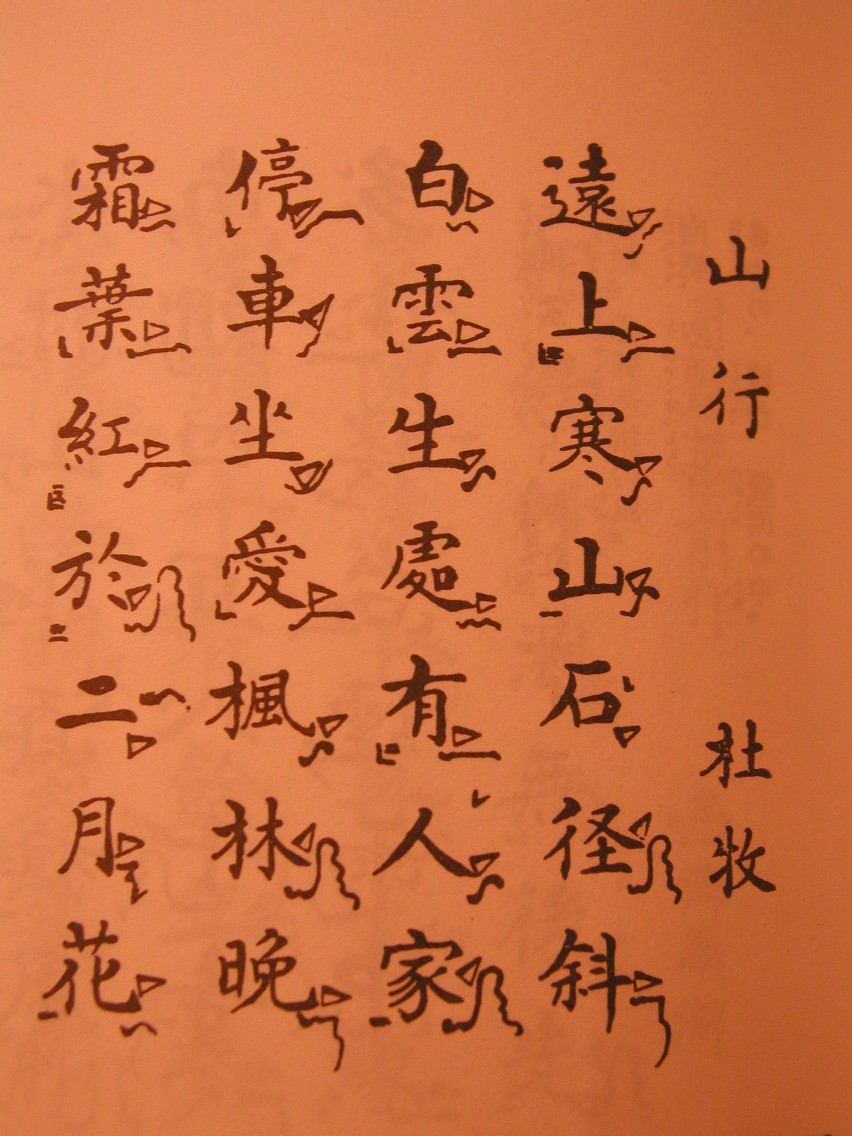 山行 杜牧
遠上寒山石径斜
白雲生處有人家
停車坐愛楓林晚
霜葉紅於二月花